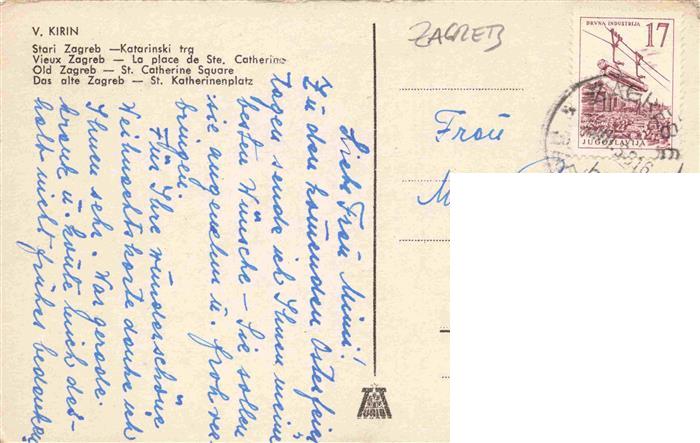 V. KIRIN
Stari Zagreb — Katarinski trg
Vieux Zagreb — La place de Ste. Catherine
Old Zagreb — St. Catherine Square
Das alte Zagreb — St. Katherinenplatz
ZAGREB
DRVNA INDUSTRIJA
17
JUGOSLAVIJA
Frau
M
Liebe Frau Mimi!
Zu den kommenden Osterfeier
tagen sende ich Ihnen meine
besten Wünsche – Sie sollen
sie angenehm u. froh ver
bringen.
Für Ihre wunderschöne
Weihnachtskarte danke ich
Ihnen sehr. War gerade
krank u. konnte mich des-
halb nicht früher bedanken